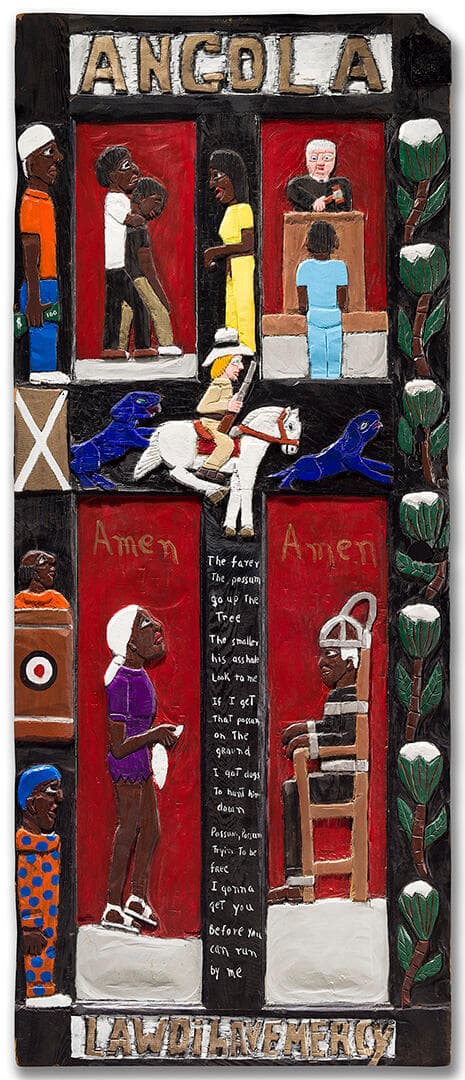 ANGOLA
Amen
Amen
The farer
The possum
go up The
Tree
The smaller
his asshole
Look to me
If I get
That possum
on The
ground
I got dogs
To hunt him
down
Possum, Possum
Tryin To be
free
I gonna
get you
Before you
can run
by me
LAWDiHAVEMERCY